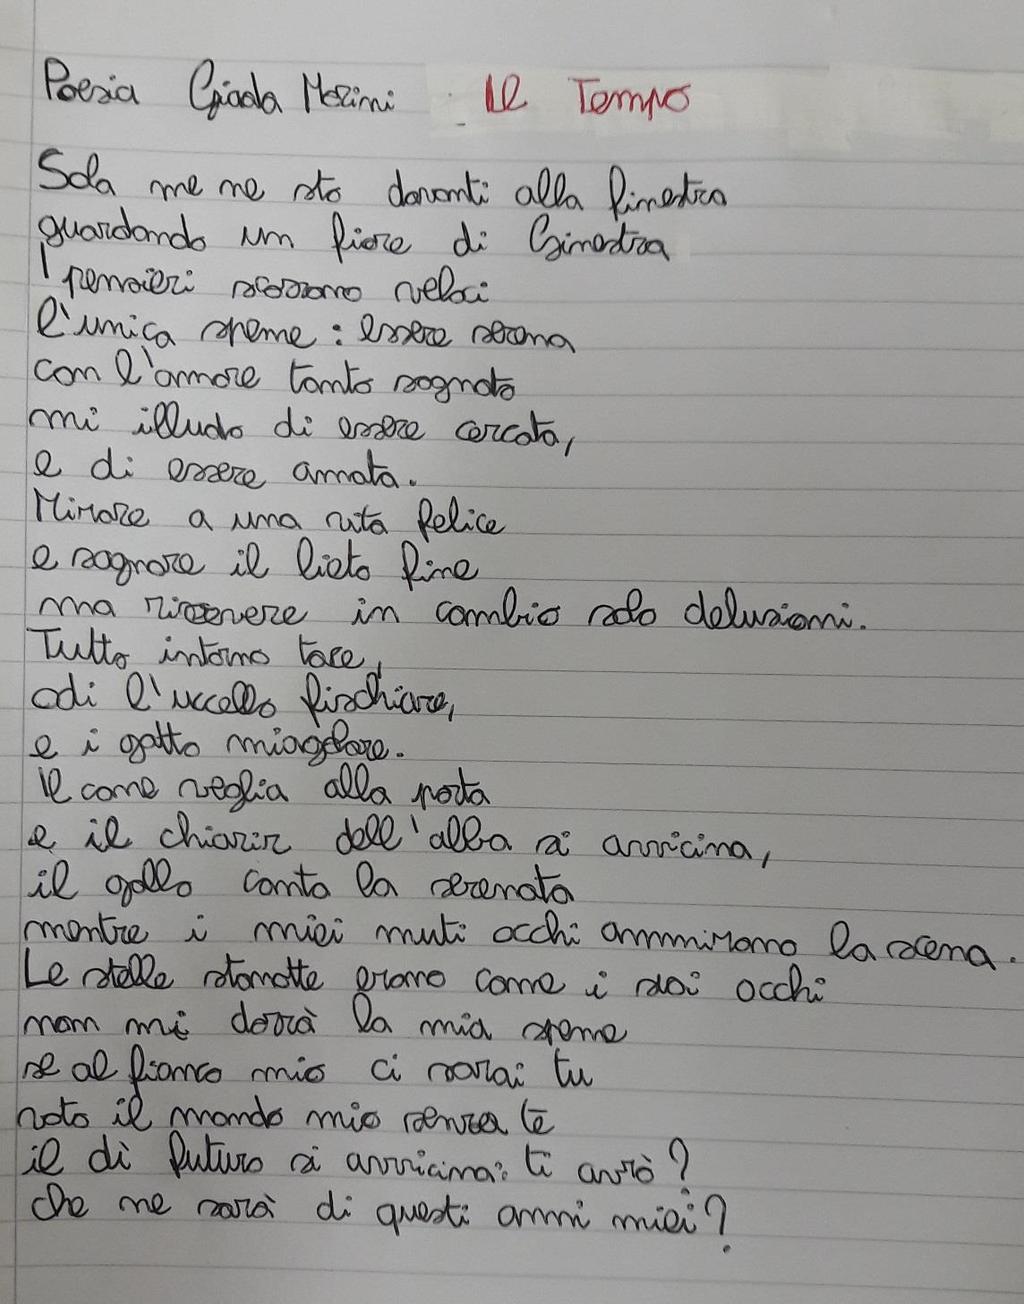 Poesia Giada Merini : Il Tempo
Sola me ne sto davanti alla finestra
guardando un fiore di Ginestra
I pensieri scorrono veloci
l'unica speme : essere serena
con l'amore tanto sognato
mi illudo di essere cercata,
e di essere amata.
Mirare a una vita felice
e sognare il lieto fine
ma ricevere in cambio solo delusioni.
Tutto intorno tace,
odi l'uccello fischiare,
e i gatto miagolare.
Il cane veglia alla porta
e il chiarir dell'alba si avvicina,
il gallo canta la serenata
mentre i miei muti occhi ammirano la scena.
Le stelle stanotte erano come i suoi occhi
non mi dorrà la mia speme
se al fianco mio ci sarai tu
voto il mondo mio senza te
il dì futuro si avvicina: ti avrò?
che ne sarà di questi anni miei?